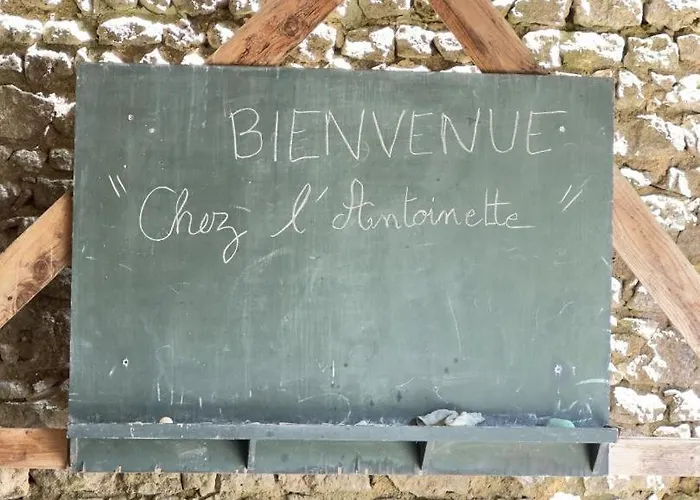 BIENVENUE
"Chez l'Antoinette"